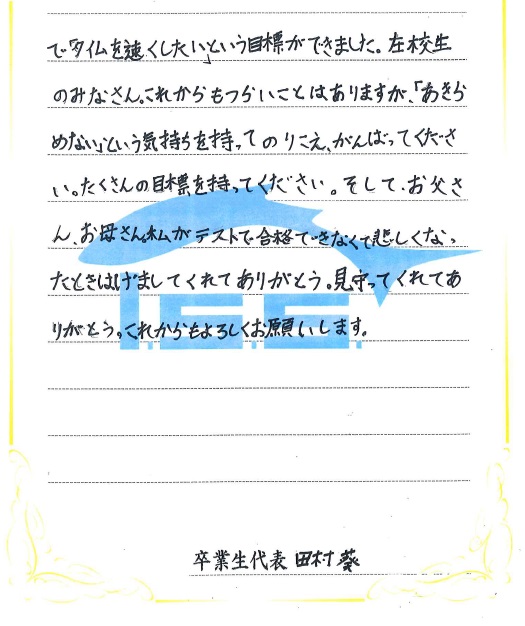 でタイムを速くしたい」という目標ができました。在校生
のみなさん。これからもつらいことはありますが、「あきら
めない」という気持ちを持ってのりこえ、がんばってくださ
い。たくさんの目標を持ってください。そして、お父さ
ん、お母さん。私がテストで合格できなくて悲しくなっ
たときはげましてくれてありがとう。見守ってくれてあ
りがとう。これからもよろしくお願いします。
I.S.S.
卒業生代表 田村 葵